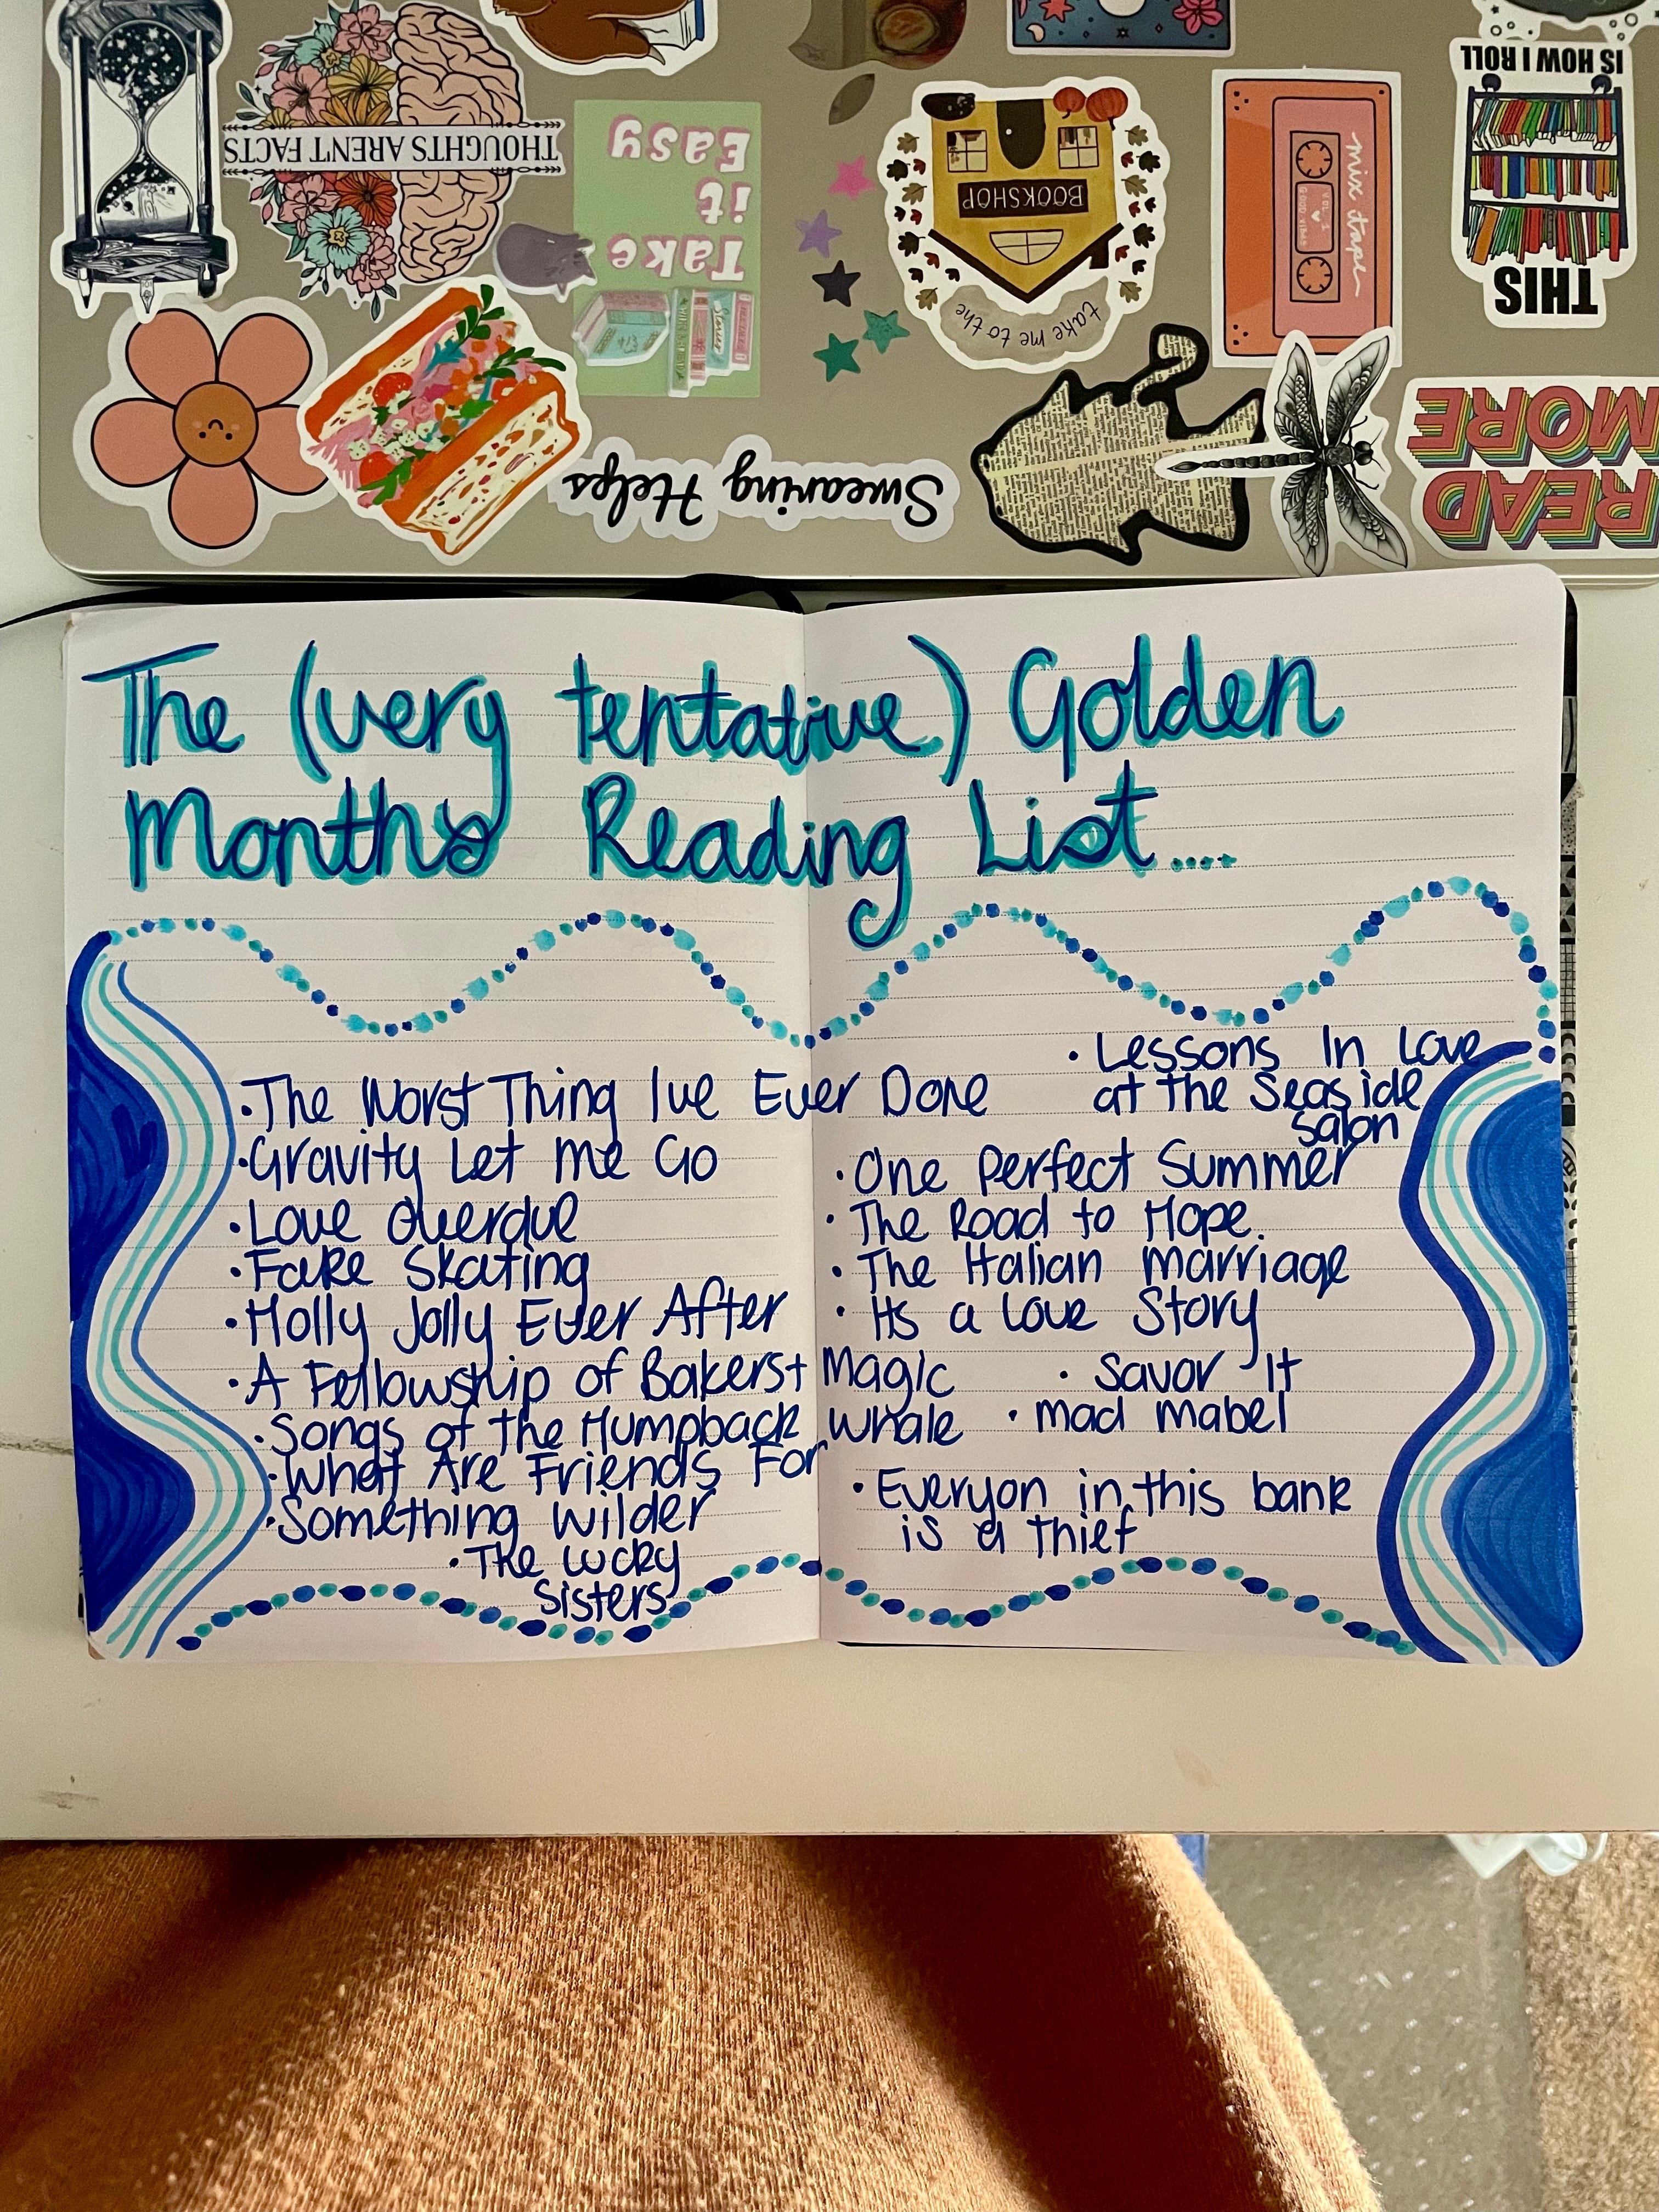 IS HOW I ROLL
THIS
THOUGHTS ARENT FACTS
Take
it
Easy
BOOKSHOP
take me to the
mix tape
Swearing Helps
READ
MORE
The (very tentative) Golden
Months Reading List....
• The Worst Thing Ive Ever Done
• Gravity Let Me Go
• Love Overdue
• Fake Skating
• Holly Jolly Ever After
• A Fellowship of Bakers + Magic
• Songs of the Humpback Whale
• What Are Friends For
• Something Wilder
• The Lucky
Sisters
• Lessons In Love
at the Seaside
Salon
• One Perfect Summer
• The Road to Hope.
• The Italian Marriage
• Its a Love Story
• Savor It
• Mad Mabel
• Everyon in this bank
is a thief